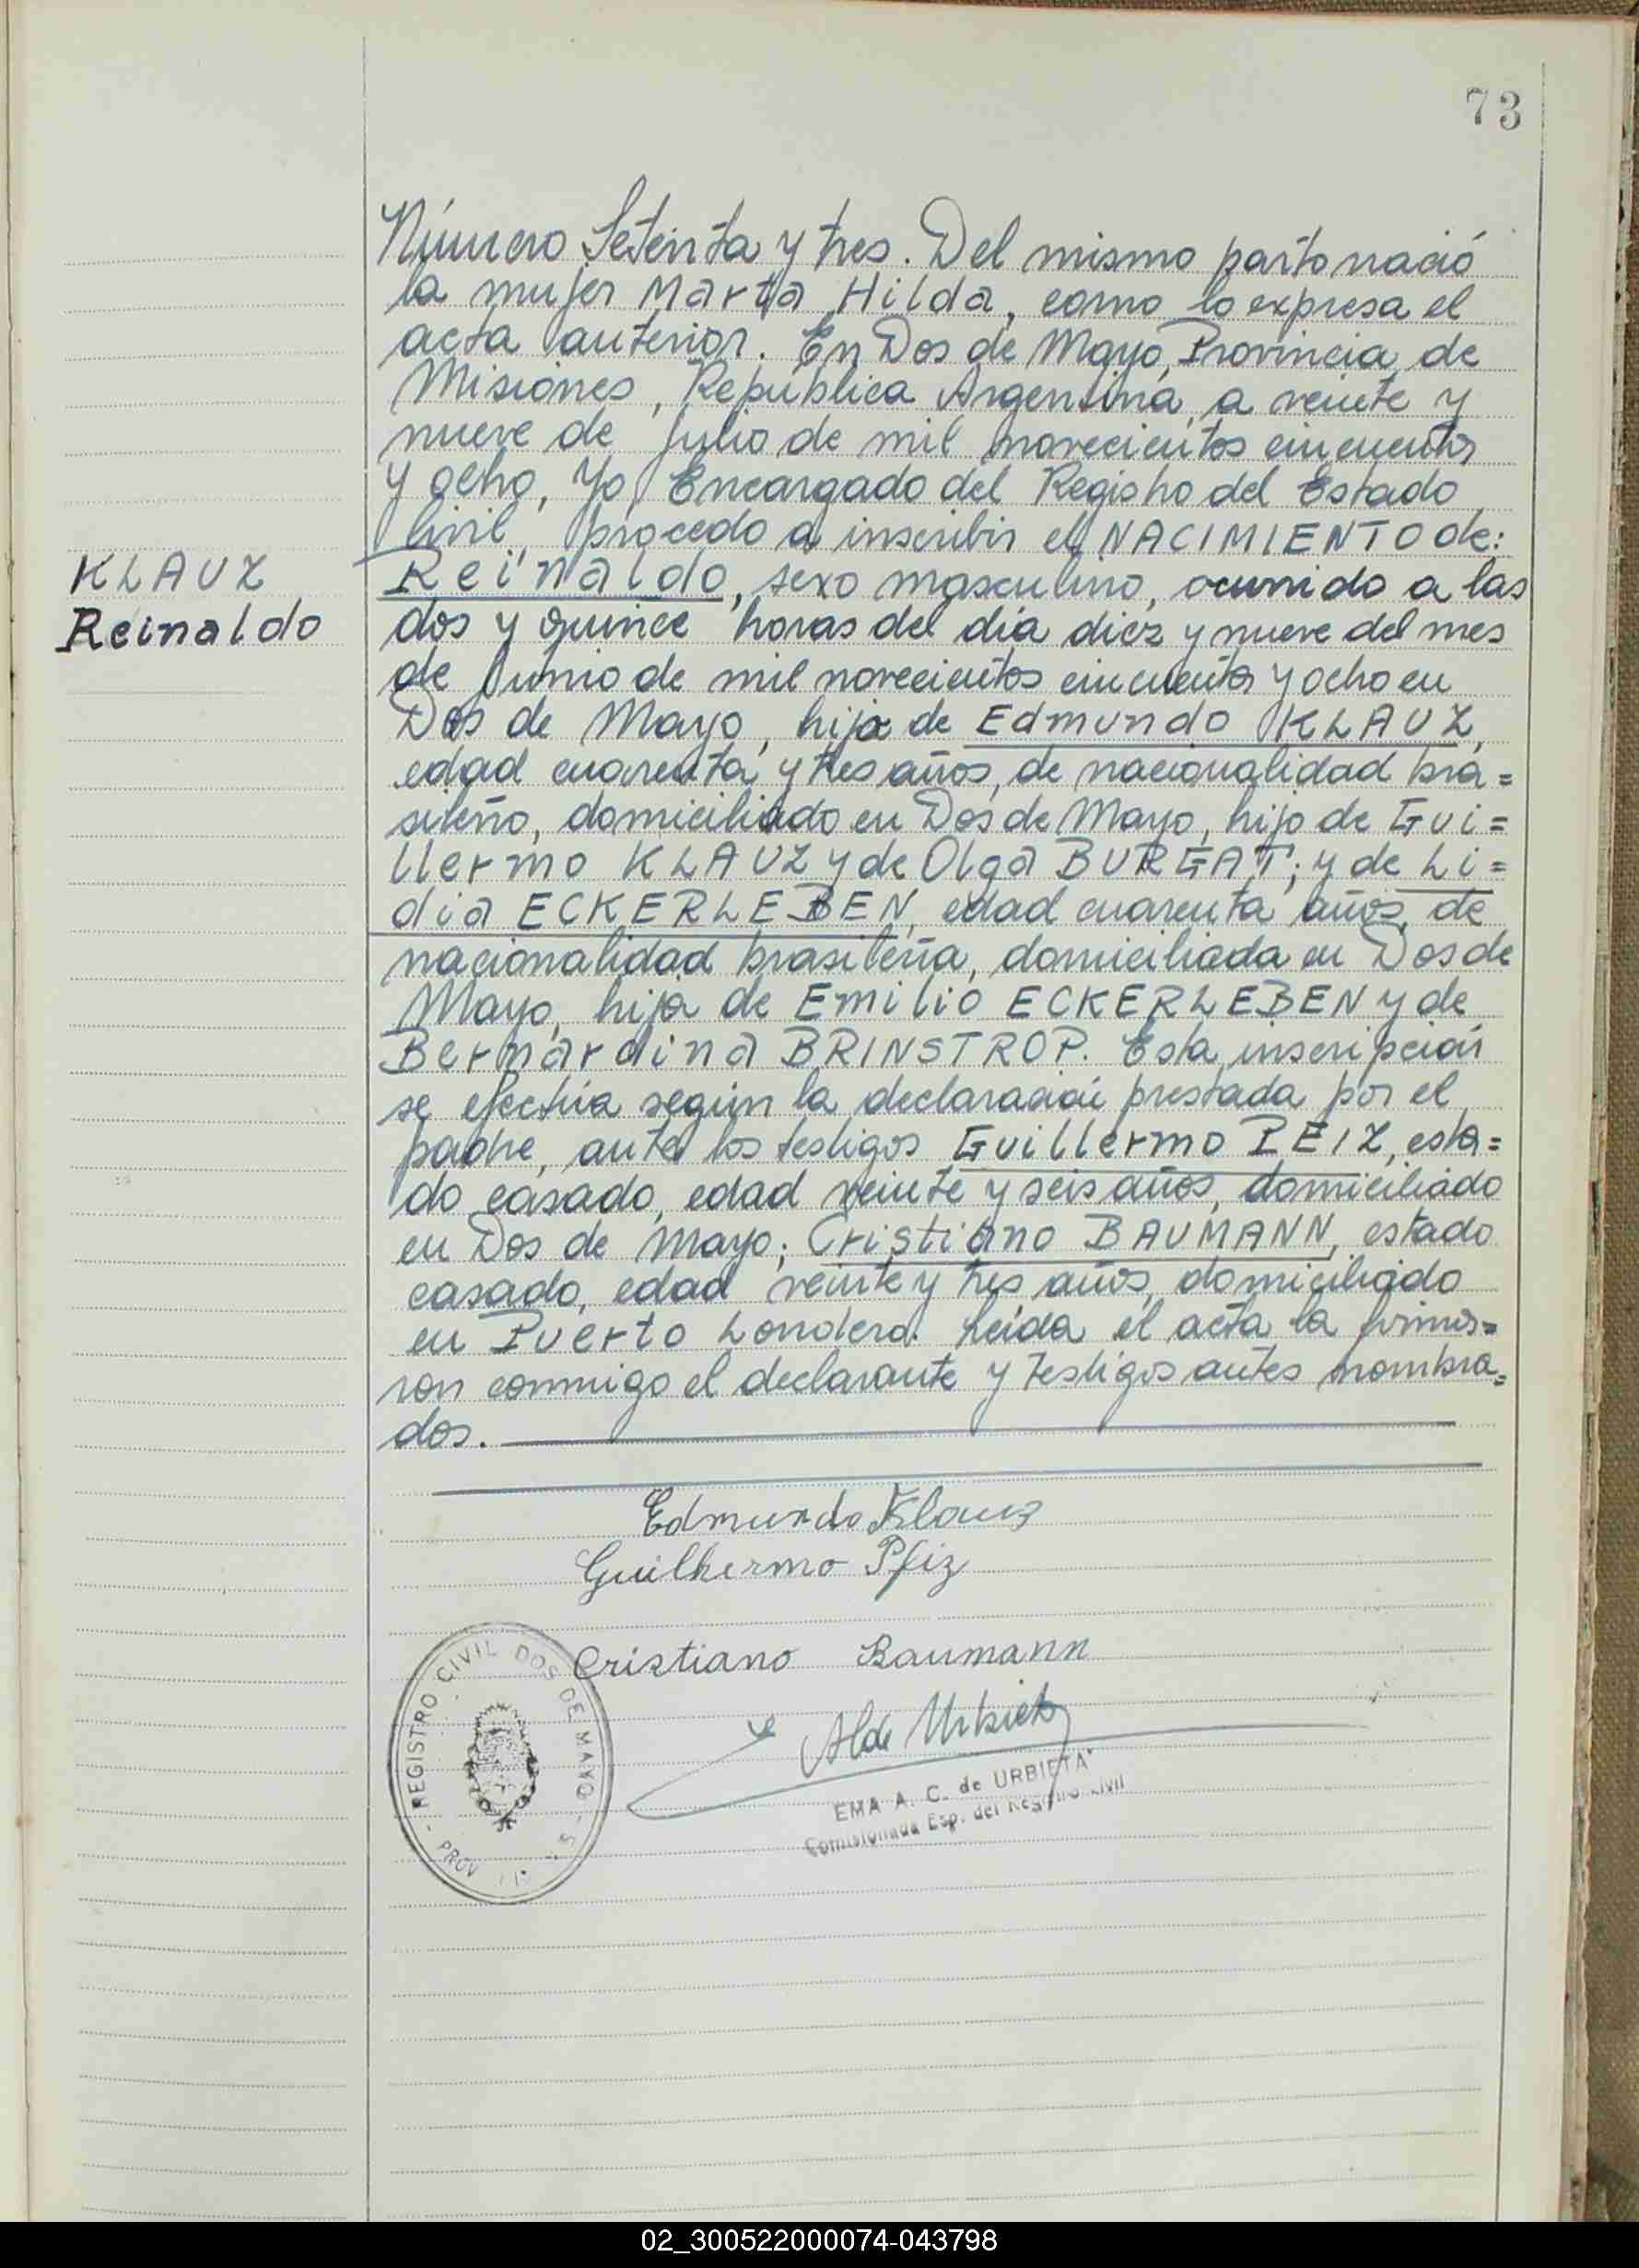 73
Número Setenta y tres. Del mismo parto nació
la mujer Marta Hilda, como lo expresa el
acta anterior. En Dos de Mayo, Provincia de
Misiones, República Argentina, a veinte y
nueve de Julio de mil novecientos cincuenta
y ocho, Yo, Encargado del Registro del Estado
Civil, procedo a inscribir el NACIMIENTO de:
KLAUZ
Reinaldo
Reinaldo, sexo masculino, ocurrido a las
dos y quince horas del día diez y nueve del mes
de Junio de mil novecientos cincuenta y ocho en
Dos de Mayo, hijo de Edmundo KLAUZ,
edad cuarenta y tres años, de nacionalidad bra=
sileño, domiciliado en Dos de Mayo, hijo de Gui=
llermo KLAUZ y de Olga BURGAT; y de Li=
dia ECKERLEBEN, edad cuarenta años, de
nacionalidad brasileña, domiciliada en Dos de
Mayo, hija de Emilio ECKERLEBEN y de
Bernardina BRINSTROP. Esta inscripción
se efectúa según la declaración prestada por el
padre, ante los testigos Guillermo PEIZ, esta=
do casado, edad veinte y seis años, domiciliado
en Dos de Mayo; Cristiano BAUMANN, estado
casado, edad veinte y tres años, domiciliado
en Puerto Londero. Leída el acta la firma=
ron conmigo el declarante y testigos antes nombra=
dos.
Edmundo Klauz
Guilhermo Pfiz
Cristiano Baumann
A C de Urbieta
EMA A. C. de URBIETA
Comisionada Esp. del Registro Civil
REGISTRO CIVIL DOS DE MAYO
PROV
02_300522000074-043798